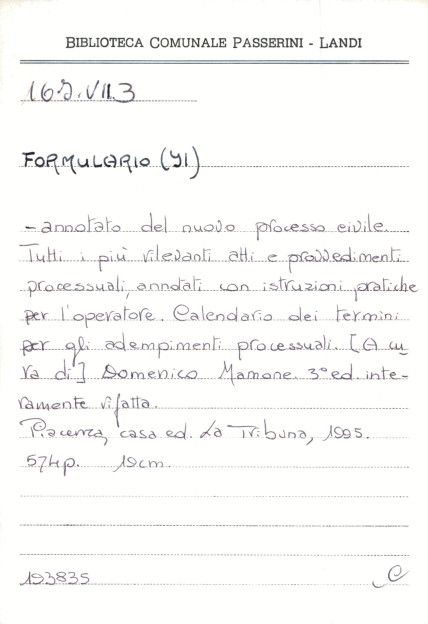 BIBLIOTECA COMUNALE PASSERINI - LANDI
16J.VII.3
FORMULARIO (YI)
- annotato del nuovo processo civile.
Tutti i più rilevanti atti e provvedimenti
processuali, annotati con istruzioni pratiche
per l'operatore. Calendario dei termini
per gli adempimenti processuali. [A cu
ra di] Domenico Mamone. 3ª ed. inte-
ramente rifatta.
Piacenza, casa ed. La Tribuna, 1995.
574p. 19cm.
193835